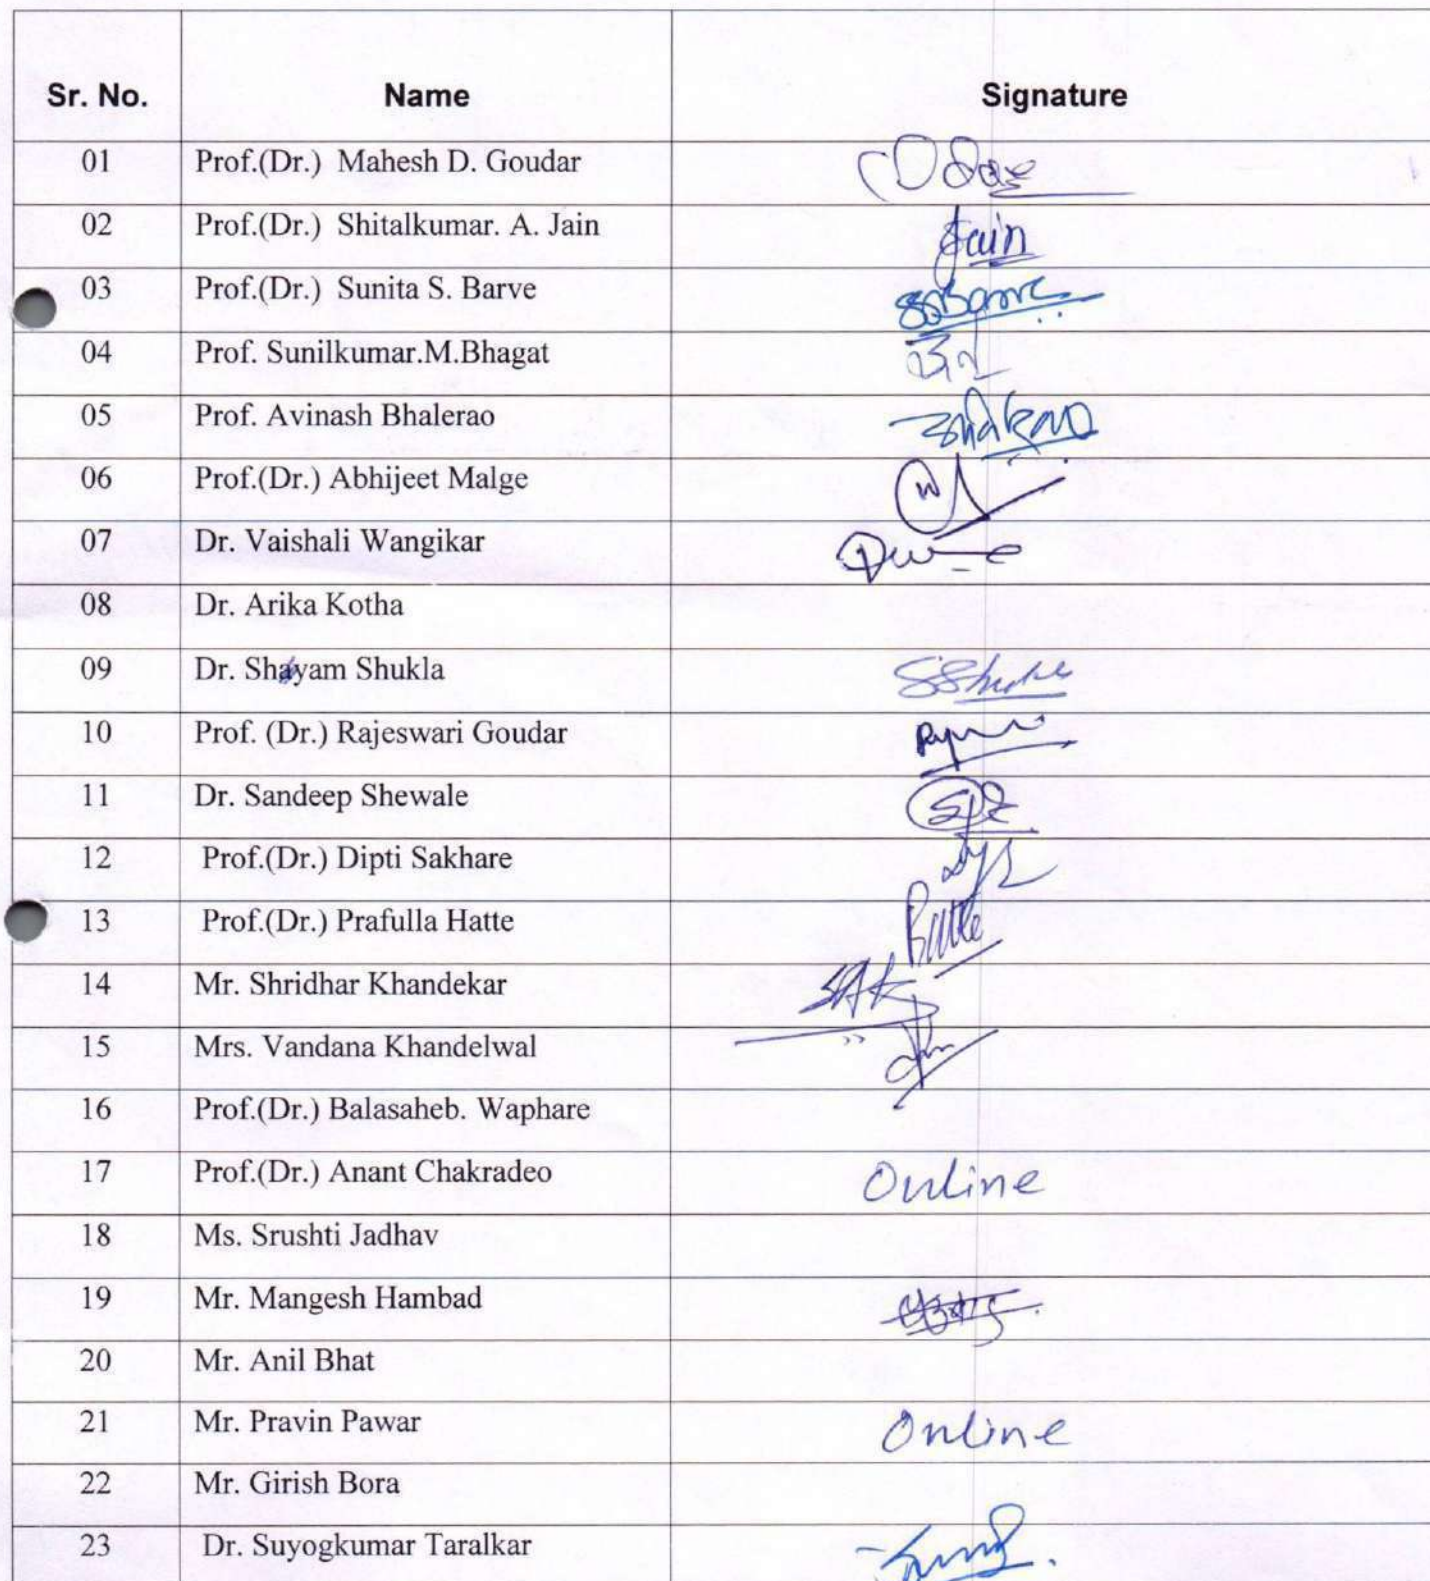 Sr. No. Name Signature
01 Prof.(Dr.) Mahesh D. Goudar
02 Prof.(Dr.) Shitalkumar. A. Jain Jain
03 Prof.(Dr.) Sunita S. Barve SSBarve
04 Prof. Sunilkumar.M.Bhagat
05 Prof. Avinash Bhalerao
06 Prof.(Dr.) Abhijeet Malge
07 Dr. Vaishali Wangikar
08 Dr. Arika Kotha
09 Dr. Shayam Shukla SShukla
10 Prof. (Dr.) Rajeswari Goudar
11 Dr. Sandeep Shewale
12 Prof.(Dr.) Dipti Sakhare
13 Prof.(Dr.) Prafulla Hatte
14 Mr. Shridhar Khandekar SAK
15 Mrs. Vandana Khandelwal
16 Prof.(Dr.) Balasaheb. Waphare
17 Prof.(Dr.) Anant Chakradeo Online
18 Ms. Srushti Jadhav
19 Mr. Mangesh Hambad
20 Mr. Anil Bhat
21 Mr. Pravin Pawar Online
22 Mr. Girish Bora
23 Dr. Suyogkumar Taralkar